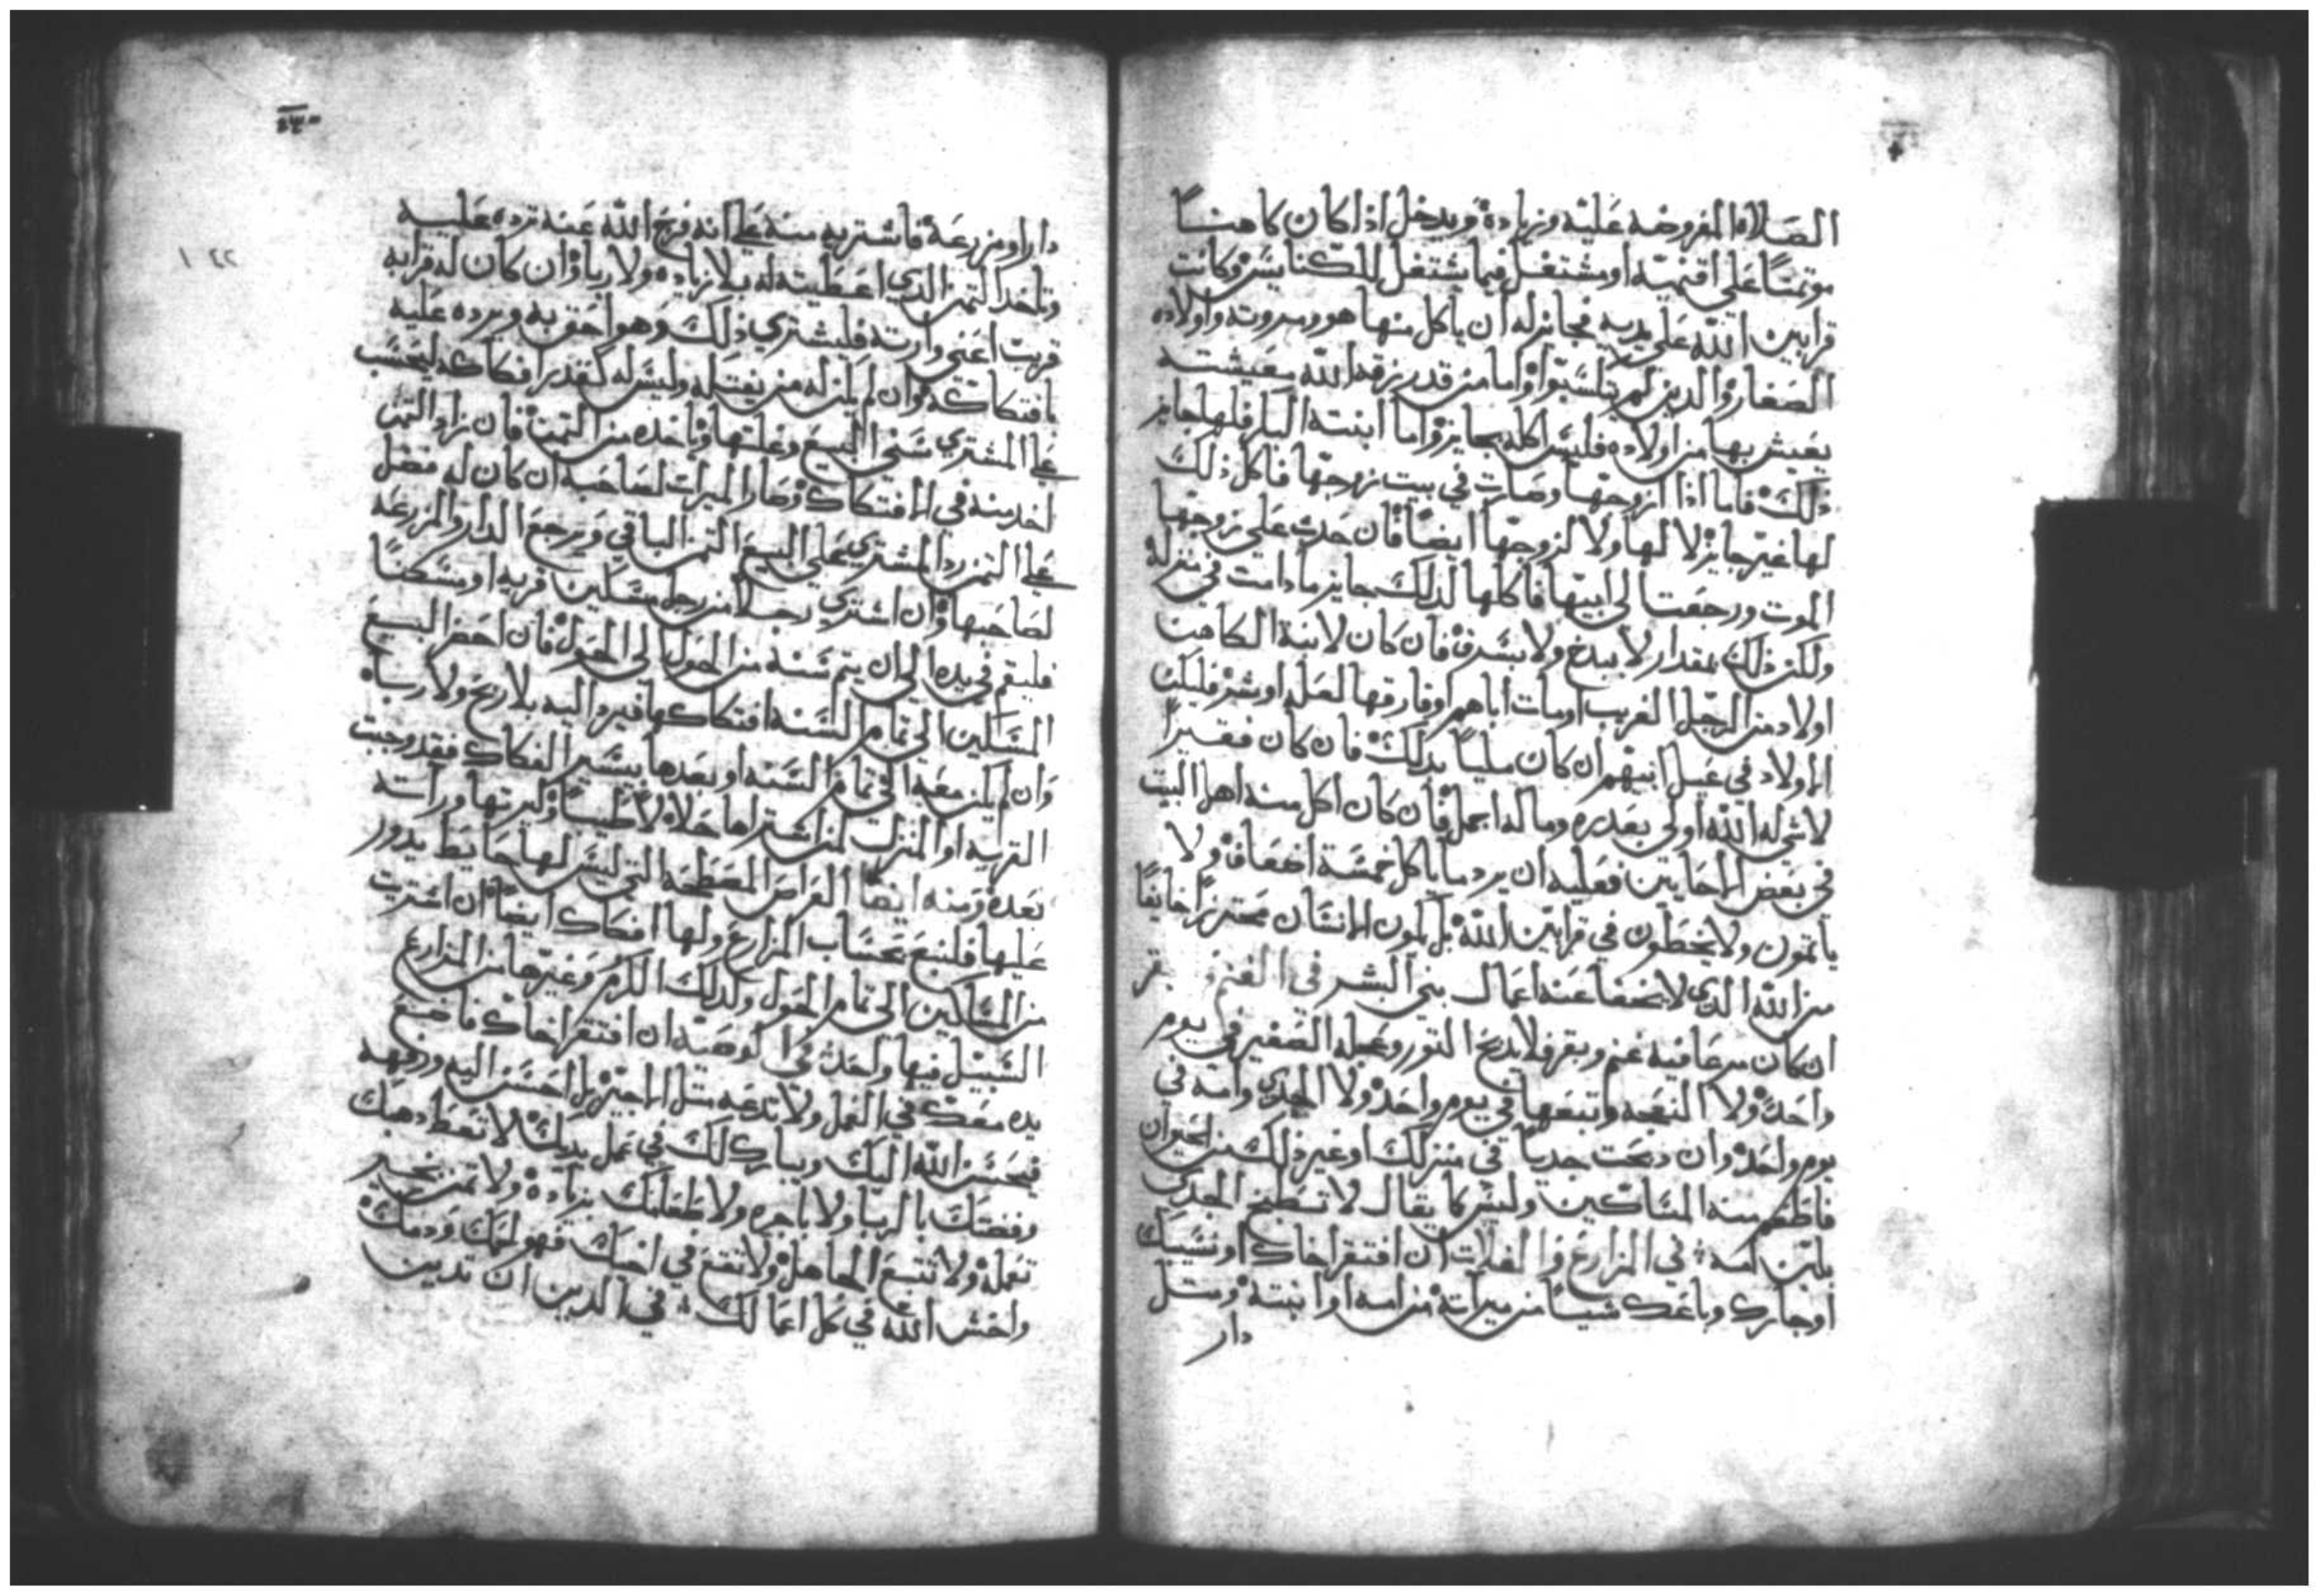 الصلاة المفروضه عليه وزياده ويدخل اذا كان كاهنا
موتمنا على اقنيته او يشتغل فيما يشتغل للكنايس وكانت
قرابين الله على يديه فجايز له ان ياكل منها هو وزوجته واولاده
الصغار والدين لم يتلسبوا واما من قد رزقه الله معيشته
يعيش بها من اولاده فليس اكله بجايز واما ابنته البكر فلها جايز
ذلك فاما اذا ازوجتها وصارت في بيت زوجها فاكل ذلك
لها غير جايز لا لها ولا لزوجها ايضا فان حدث على زوجها
الموت ورجعت الي ابيها فاكلها لدلك جايز ما دامت في منزله
ولكن ذلك بمقدار لا يبدخ ولا يسرف فان كان لابنة الكاهن
اولاد من الرجل الغريب او مات اباهم او فارقها لعله او شر فليكن
الاولاد في عيل ابيهم ان كان مليا بدلك فان كان فقيرا
لا شي له الله اولي بعدره وما له اجمل فان كان اكل منه اهل البيت
في بعض الاحايين فعليه ان يرد ما ياكل خمسة اضعاف ولا
ياتمون ولا يخطون في قرابين الله بل يكون الانسان محترزا خايفا
من الله الدي لا يخفا عنه اعمال بني البشر في الغنم
ان كان مرعا فيه غنم وبقر فلا يدبح التور وعجله الصغير في يوم
واحد ولا النعجه وتبيعها في يوم واحد ولا الجدي وامه في
يوم واحد وان دبحت جديا في منزلك او غير ذلك من الحيوان
فاطعم منه المساكين وليس كما يقال لا تطبخ الجدي
بلبن امه في المزارع والغلات ان افتقر اخاك او نسيبك
او جارك وباعك شييا من ميراته من امه او ابنته ومتل
دار
دارا او مزرعة فاشتريه منه على انه فرج الله عنه ترده عليه
وتاخد التمن الدي اعطيته له بلا زياده ولا ربا وان كان له قرابه
قريب اعني وارته فليشتري ذلك وهو احق به ويرده عليه
بافتكاكه وان لم يكن له من يفتكه وليس له كقدر افتكاكه ليحسب
على المشتري سني البيع وغلتها وياخده من التمن فان زاد التمن
اخد منه في الافتكاك وصار الميرات لصاحبه ان كان له فضل
على التمن رد المشتري على البيع التمن الباقي ويرجع الدار والمزرعه
لصاحبها وان اشتري رجلا من رجل مساكين قريه او مسكنا
فليقم في يده الي ان يتم سنه من الحول الي الحول فان احضر البيع
المساكين الي تمام السنه افتكاكها فيرد اليه بلا ربح ولا رباه
وان لم يكن معه الي تمام السنه او بعدها بيسير الفكاك فقد وجبت
القريه او المنزل لمن اشتراها حلالا طيبا وليرتها وراته
بعده ومنه ايضا العراص المصطحه التي ليس لها حايط يدور
عليها فلتبع بحساب المزارع ولها افتكاك ايضا ان اشتريت
من المساكين الي تمام الحول ولدلك الكرم وغيرها من المزارع
السبيل فيها واحد في الوصيه ان افتقر اخاك فاضع
يده معك في العمل ولا تدعه متل الاجير بل احسن اليه ورفهه
فيحسن الله اليك ويبارك لك في عمل يديك لا تعط دهبك
وفضتك بالربا ولا باجره ولا طعامك بزياده ولا تمن بخير
تعمله ولا تتبع الجاهل ولا تقع في اخيك فهو لحمك ودمك
واخش الله في كل اعمالك في الدين ان تدين